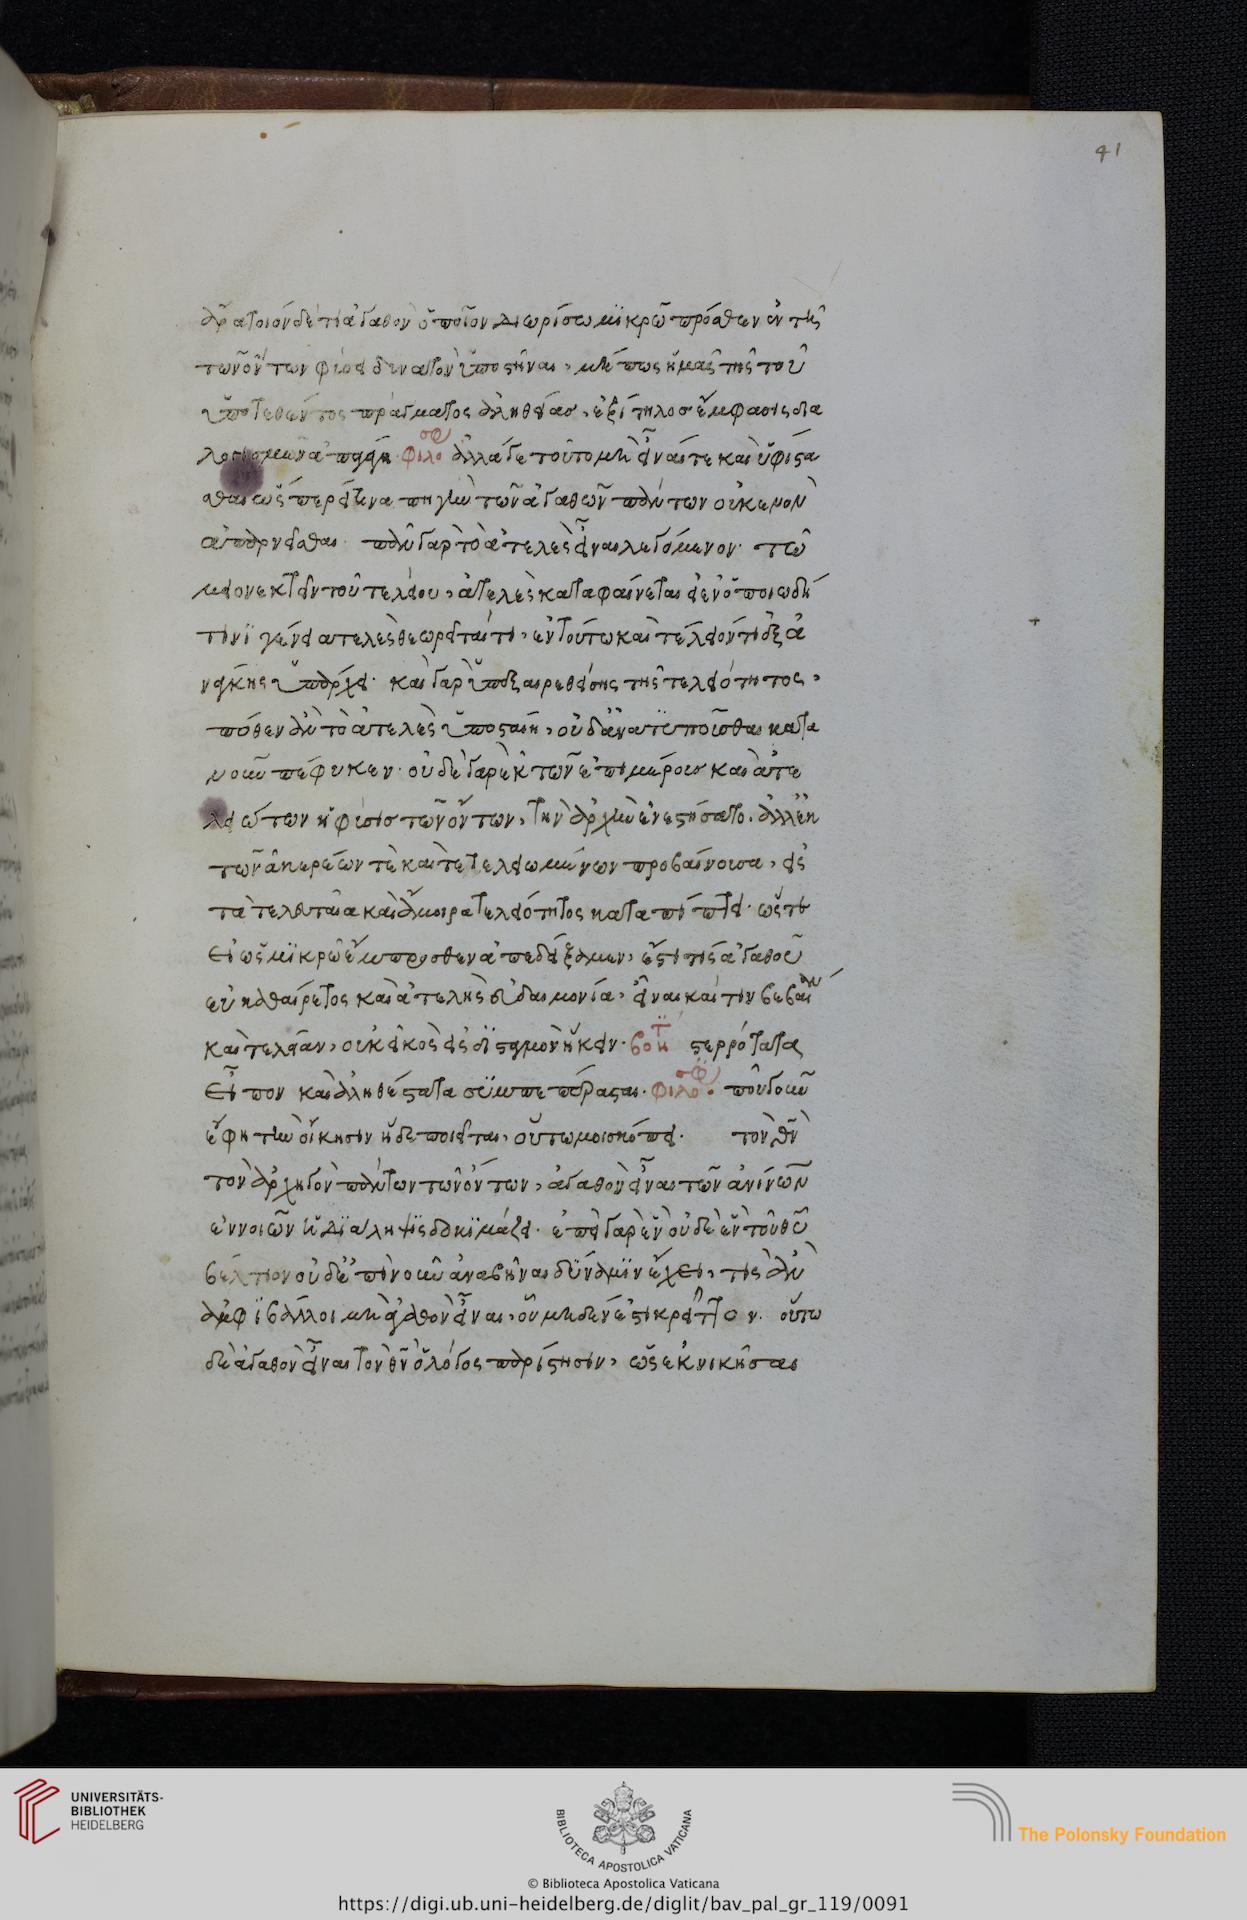 41
ἆρα τοιόνδέ τι ἀγαθὸν ὁποῖον διωρίσω μικρῶ πρόσθεν ἐν τῆ
τῶν ὄντων φύσει δύναται ὑποστῆναι, μή πως ἡμᾶς τῆς τοῦ
ὑποτεθέντος πράγματος ἀληθείας, ἐξίτηλος ἔμφασις δια
λογισμῶν ἀπάγη· φιλοσοφ ἀλλά γε τοῦτο μὴ εἶναί τε καὶ ὑφίστα
σθαι ὥσπερ τινα πηγὴν τῶν ἀγαθῶν πάντων οὐκ ἔνον
ἀπαρνεῖσθαι· πᾶν γὰρ τὸ ἀτελὲς εἶναι λεγόμενον· τῶ
μειονεκτεῖν τοῦ τελείου, ἀτελὲς καταφαίνεται εἰ ἐν ὁποιωδή
τινι γένει ἀτελὲς θεωρεῖταί τι, ἐν τούτω καὶ τέλειόν τι ἐξ ἀ
νάγκης ὑπάρχει· καὶ γὰρ ὑπεξαιρεθείσης τῆς τελειότητος,
πόθεν ἂν τὸ ἀτελὲς ὑποσταίη, οὐδ' ἀνατυποῦσθαι κατα
νοῦν πέφυκεν· οὐδὲ γὰρ ἐκ τῶν ἐπιμέρους καὶ ἀτε
λειώτων ἡ φύσις τῶν ὄντων, τὴν ἀρχὴν ἐνεστήσατο. ἀλλ' ἐκ
τῶν ἀκεραίων τὲ καὶ τετελειωμένων προβαίνουσα, εἰς
τὰ τελευταῖα καὶ ἄμοιρα τελειότητος καταπίπτει· ὥστε
εἰ ὡς μικρῶ ἔμπροσθεν ἀπεδείξαμεν, ἔστι τις ἀγαθοῦ
εὐκαθαίρετος καὶ ἀτελὴς εὐδαιμονία, εἶναι καί τιν βεβαίαν
καὶ τελείαν, οὐκ εἰκὸς εἰς δισταγμὸν ἥκειν· βοητ στερρότατα
εἶπον καὶ ἀληθέστατα συμπεπέρασται· φιλοσοφ ποῦ γοῦν
ἔφη τὴν οἴκησιν ἥδε ποιεῖται, οὕτω μοι σκόπει· τὸν θν
τὸν ἀρχηγὸν πάντων τῶν ὄντων, ἀγαθὸν εἶναι τῶν ἀνινων
ἐννοιῶν ἡ διάληψις δοκιμάζει· ἐπεὶ γὰρ ἓν οὐδὲ ἓν τοῦ θυ
βέλτιον οὐδ' ἐπίνοιαν ἀναβῆναι δύναμιν ἔχει, τίς ἂν
ἀμφιβάλλοι μὴ ἀγαθὸν εἶναι, οὗ μηδέν ἐστι κρεῖττον. οὕτω
δὲ ἀγαθὸν εἶναι τὸν θν ὁ λόγος παρίστησιν, ὡς ἐκνικῆσαι
UNIVERSITÄTS-
BIBLIOTHEK
HEIDELBERG
BIBLIOTECA APOSTOLICA VATICANA
The Polonsky Foundation
© Biblioteca Apostolica Vaticana
https://digi.ub.uni-heidelberg.de/diglit/bav_pal_gr_119/0091